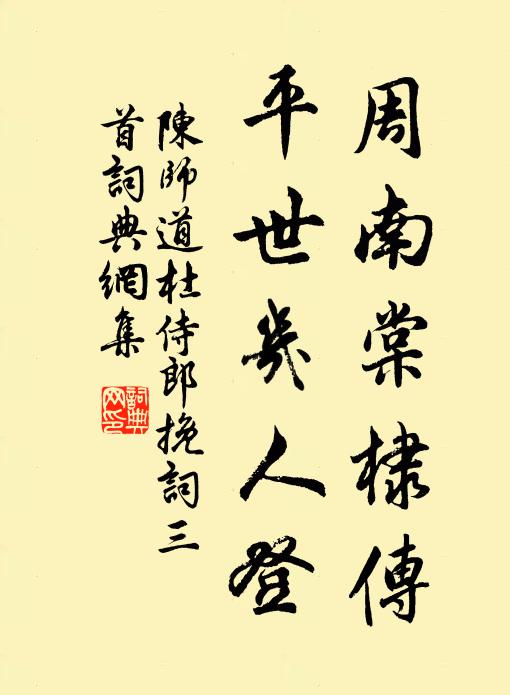 周南棠棣傳
平世幾人登
陳師道杜侍郎挽詞三
首詞典網集
詞典
网印